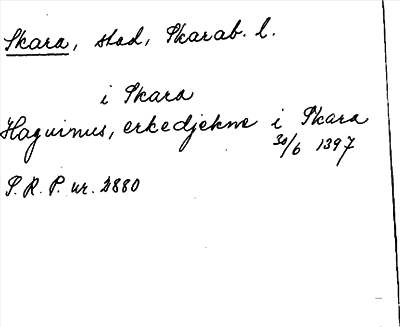 Skara, stad, Skarab. l.
i Skara
Haquinus, erkedjekne i Skara
30/6 1397
P. R. P. nr. 2880